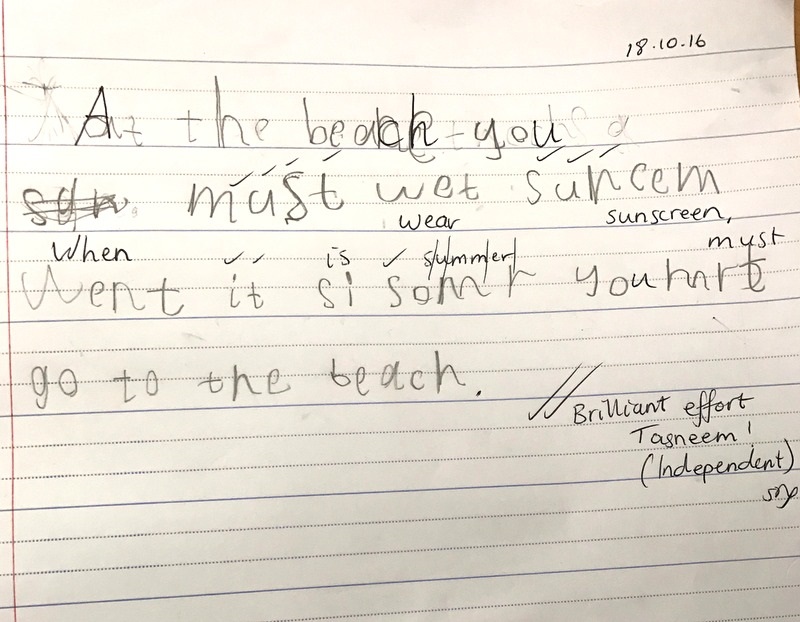 18.10.16
At the beach you
must wet suncem
wear sunscreen,
When is summer must
Went it si somr youmrt
go to the beach.
Brilliant effort
Tasneem!
(Independent)